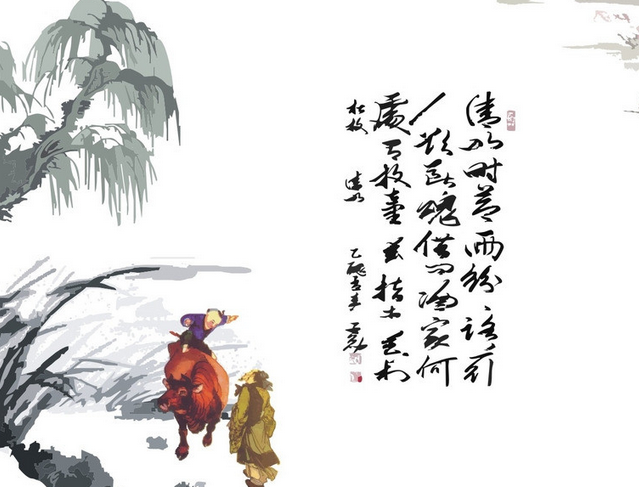 清明时节雨纷纷路上行
人欲断魂借问酒家何
处有牧童遥指杏花村
杜牧 清明